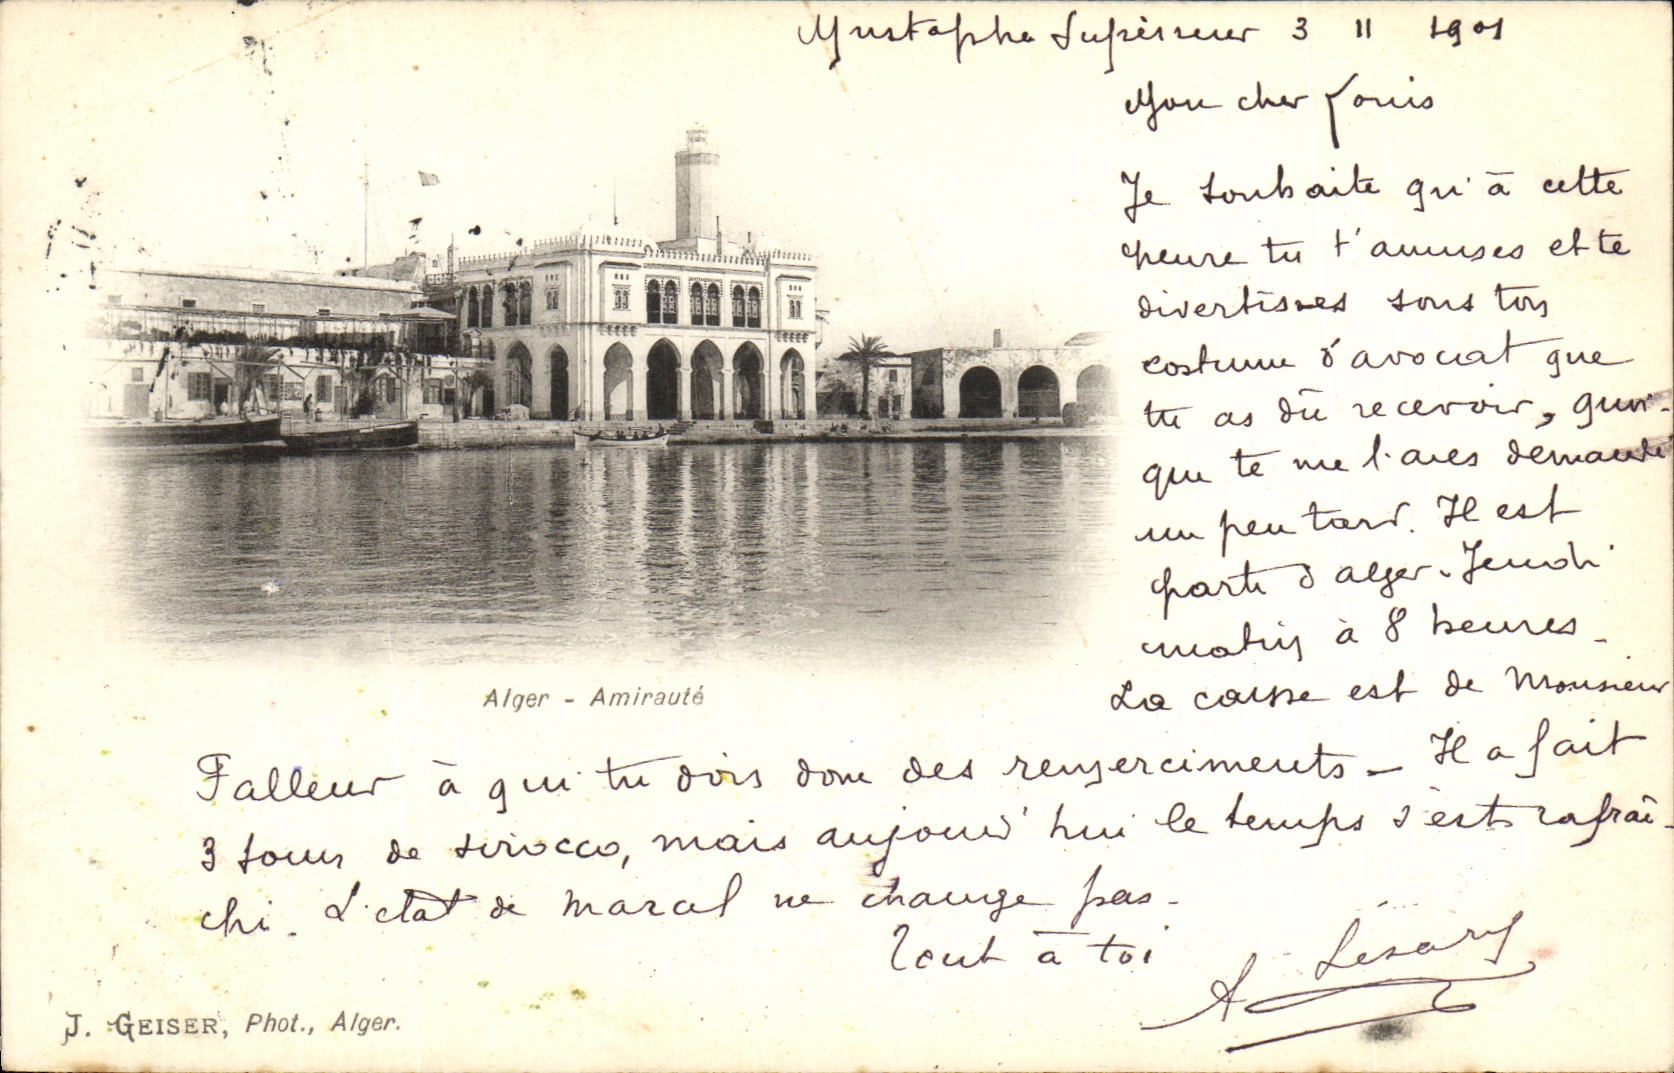 Mustapha Supérieur 3 11 1901
Mon cher Louis
Je souhaite qu'à cette
heure tu t'amuses et te
divertisses sous ton
costume d'avocat que
tu as dû recevoir, quoi-
que tu me l'aies demandé
un peu tard. Il est
parti d'alger. Jeudi
matin à 8 heures -
La caisse est de Monsieur
Falleur à qui tu dois donc des remerciments - Il a fait
3 jours de sirocco, mais aujourd'hui le temps s'est rafraî-
chi. L'état de Marcel ne change pas -
Tout à toi
A
Alger - Amirauté
J. GEISER, Phot., Alger.